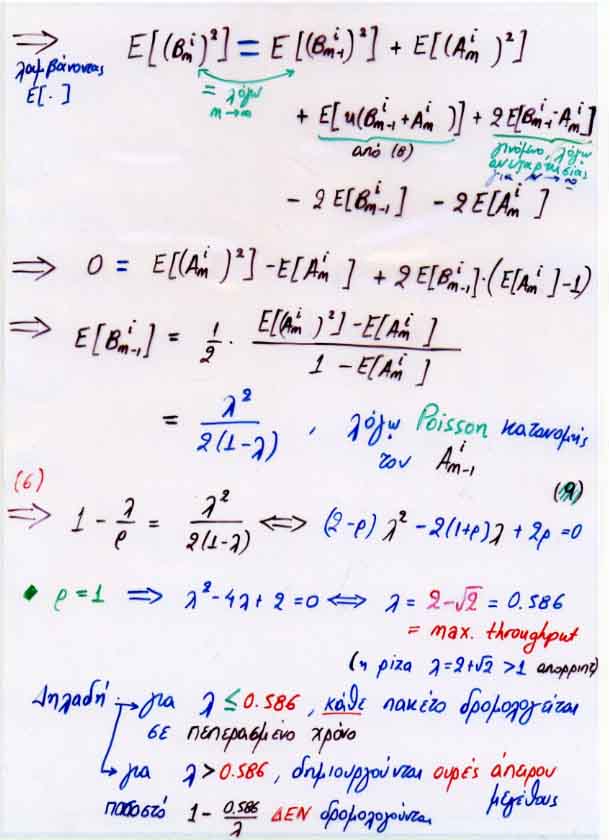 ⟹ E[(B_m^i)^2] = E[(B_{m-1}^i)^2] + E[(A_m^i)^2]
λαμβάνοντας
E[·]
= λόγω
m→∞
+ E[u(B_{m-1}^i + A_m^i)] + 2E[B_{m-1}^i·A_m^i]
από (8)
γινόμενο, λόγω
ανεξαρτησίας
για N→∞
- 2E[B_{m-1}^i] - 2E[A_m^i]
⟹ 0 = E[(A_m^i)^2] - E[A_m^i] + 2E[B_{m-1}^i]·(E[A_m^i]-1)
⟹ E[B_{m-1}^i] = 1/2 · (E[(A_m^i)^2] - E[A_m^i]) / (1 - E[A_m^i])
= λ^2 / 2(1-λ) , λόγω Poisson κατανομής
του A_{m-1}^i
(6) (9)
⟹ 1 - λ/ρ = λ^2 / 2(1-λ) ⟺ (2-ρ)λ^2 - 2(1+ρ)λ + 2ρ = 0
• ρ=1 ⟹ λ^2 - 4λ + 2 = 0 ⟺ λ = 2-√2 = 0.586
= max. throughput
(η ρίζα λ=2+√2 >1 απορριπτ)
Δηλαδή → για λ ≤ 0.586 , κάθε πακέτο δρομολογείται
σε πεπερασμένο χρόνο
→ για λ > 0.586 , δημιουργούνται ουρές άπειρου
μεγέθους
ποσοστό 1 - 0.586/λ ΔΕΝ δρομολογούνται